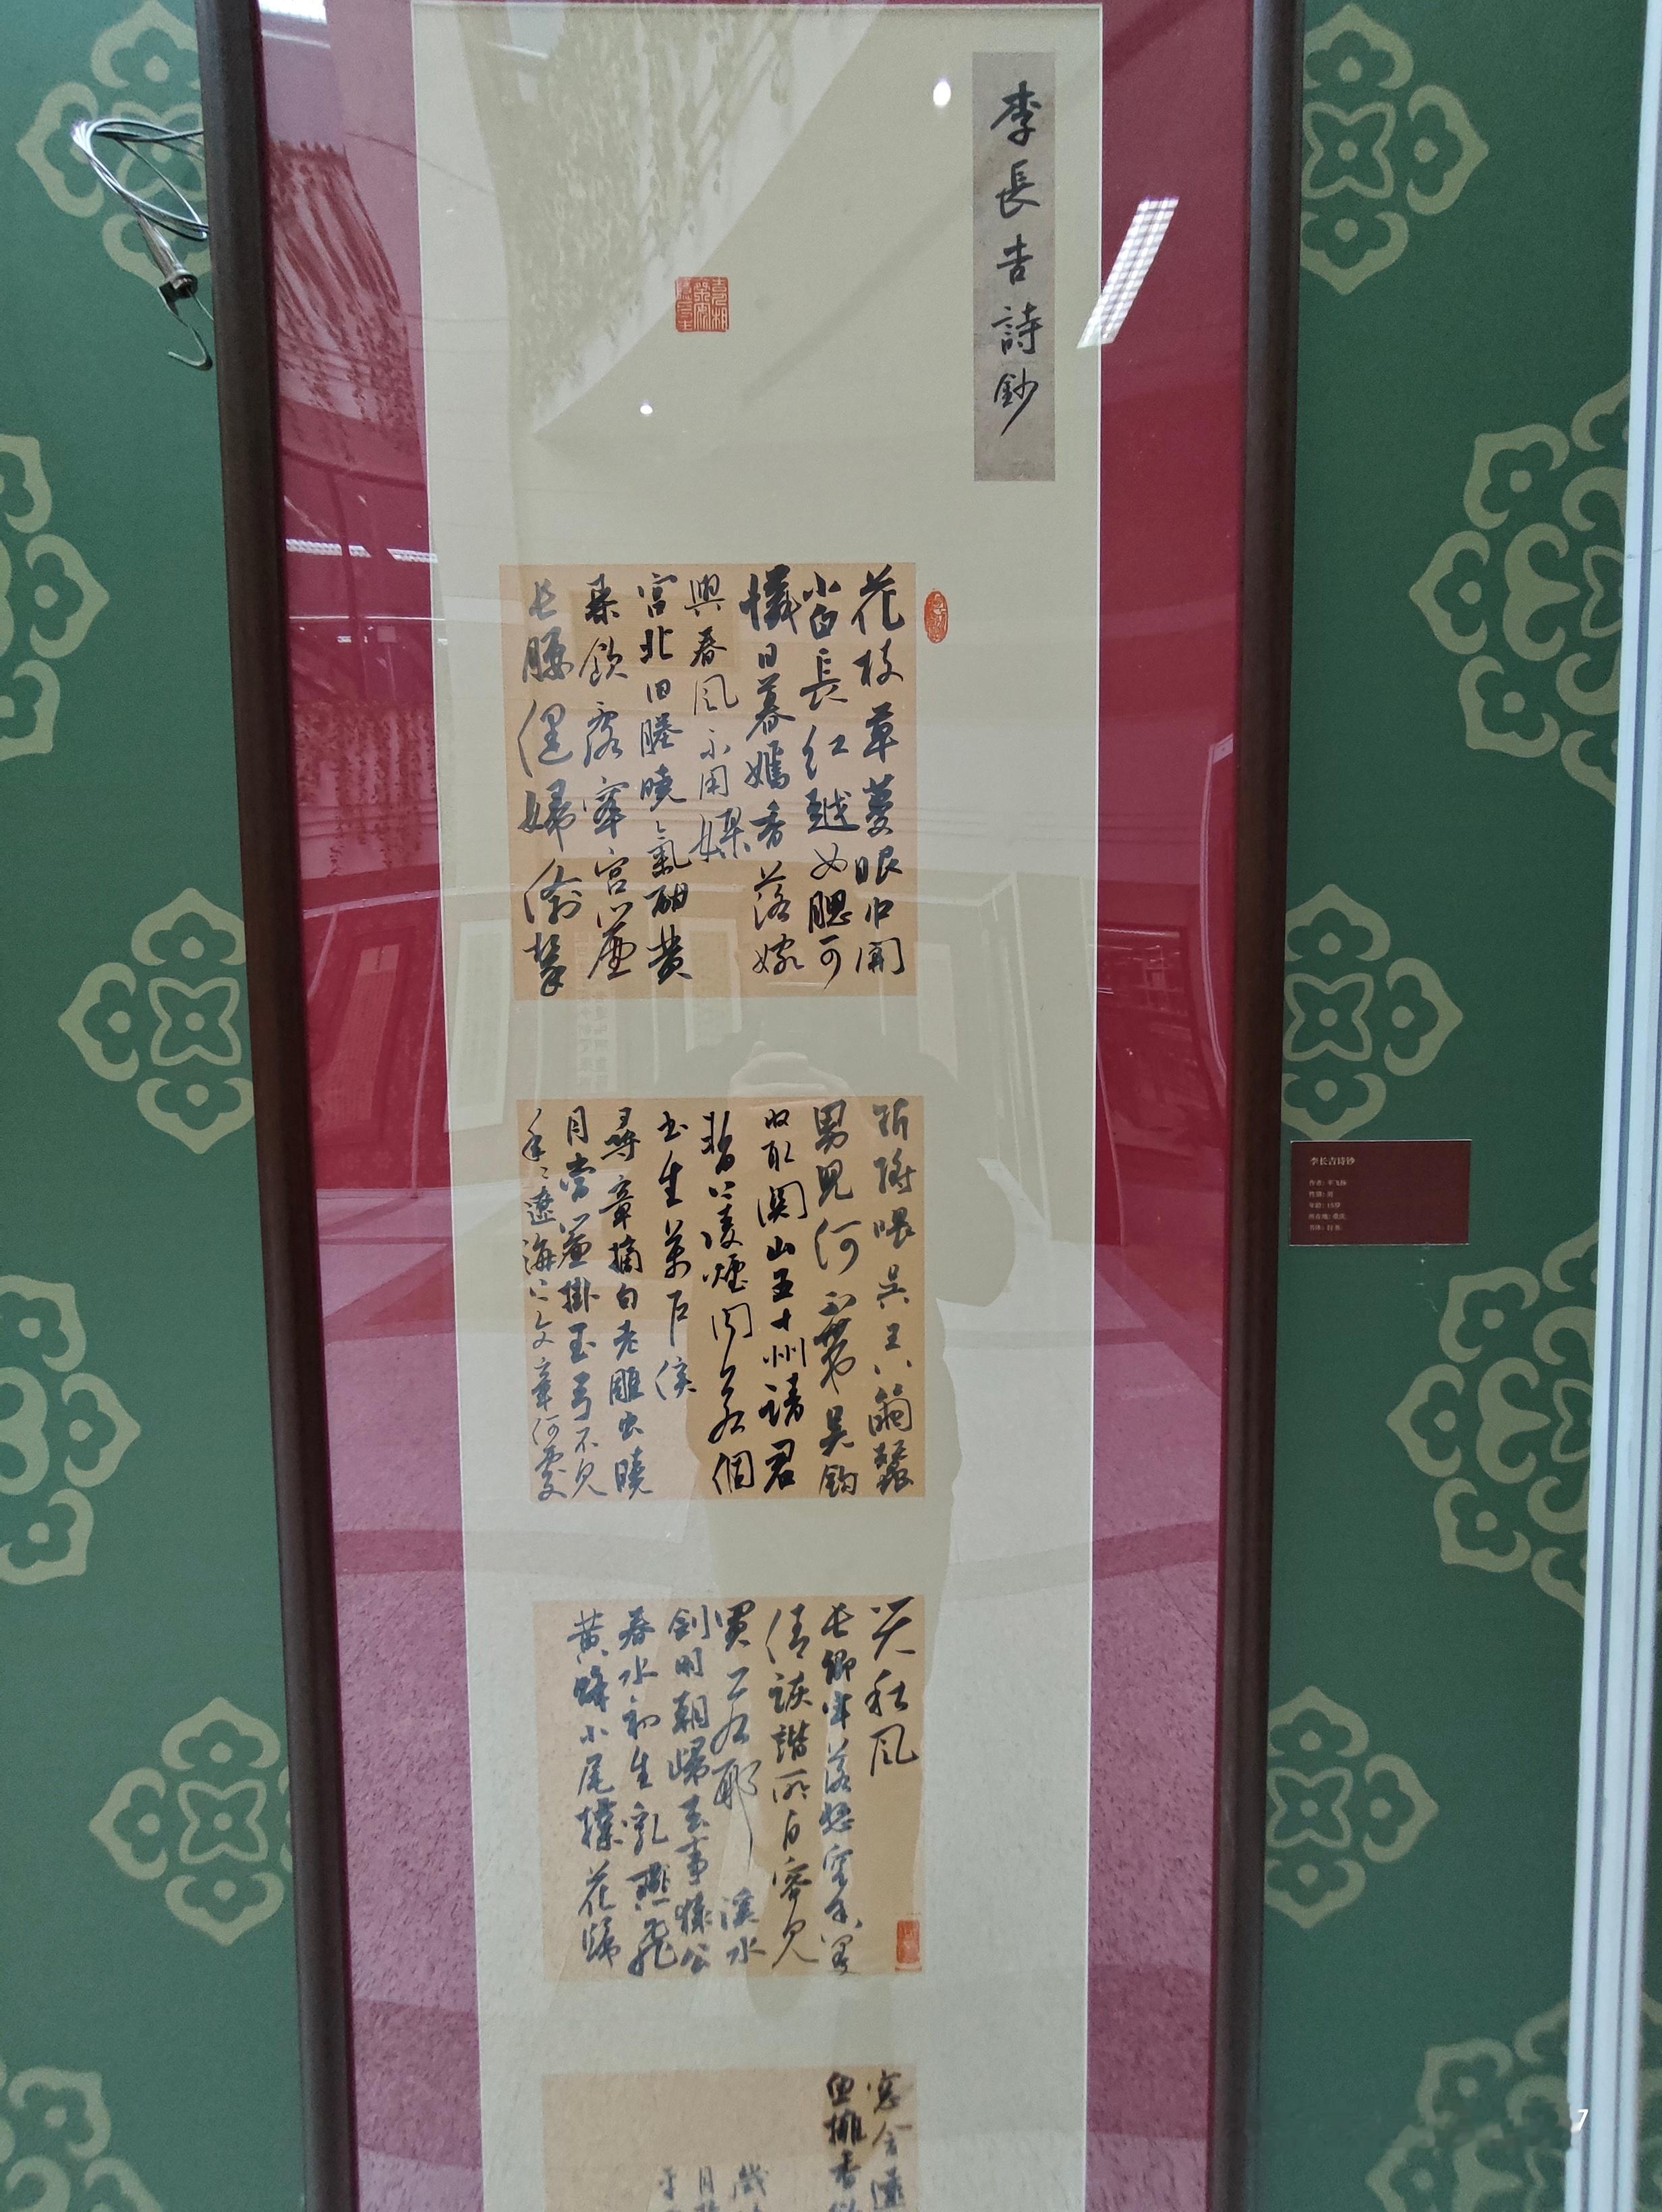 李長吉詩鈔
花枝草蔓眼中開
小白長紅越女腮可
憐日暮嫣香落嫁
與春風不用媒
宮北田塍曉氣酣黄
桑飲露窣宮簾
長腰健婦偷攀
折將喂吳王八繭蠶
男兒何不帶吳鈎
收取関山五十州請君
暫上凌煙閣若個
書生萬户侯
尋章摘句老雕虫曉
月當簾掛玉弓不見
年年遼海上文章何處
哭秋風
長卿牢落悲空舍曼
倩詼諧取自容見
買若耶溪水
劍明朝歸去事猿公
春水初生乳燕飛
黄蜂小尾撲花歸
窓含遠
魚擁香
李长吉诗钞
性别: 男
书体: 行书